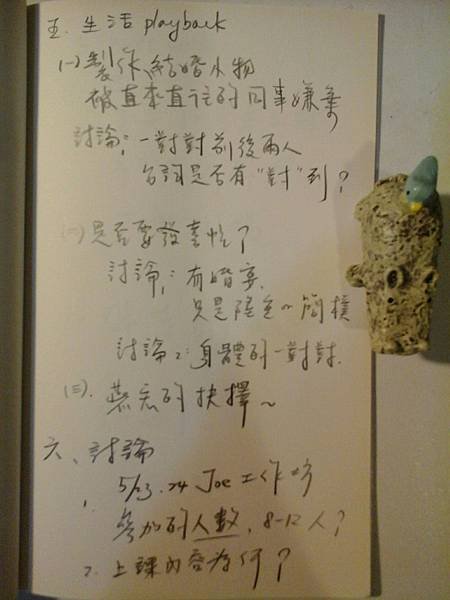 五. 生活 playback
(一) 製作結婚小物
被直來直往的同事嫌棄
討論1: 一對對前後兩人
台詞是否有"對"到?
(二) 是否要發喜帖?
討論1: 有婚宴,
只是陸色~簡樸
討論2: 身體的一對對.
(三). 的抉擇~
六、討論
1. 5/23.24 Joe工作坊
參加的人數, 8-12人?
2. 上課內容為何?